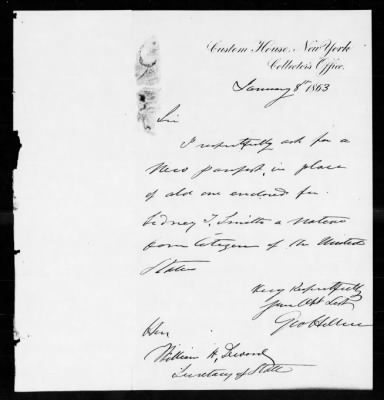 Custom House, New York
Collector's Office.
January 8th 1863
Sir
I respectfully ask for a
New passport in place
of old one enclosed for
Sidney T. Smith a native
born Citizen of the United
States
Very Respectfully
Your Obt Servt
Geo
Hon
William H. Seward
Secretary of State